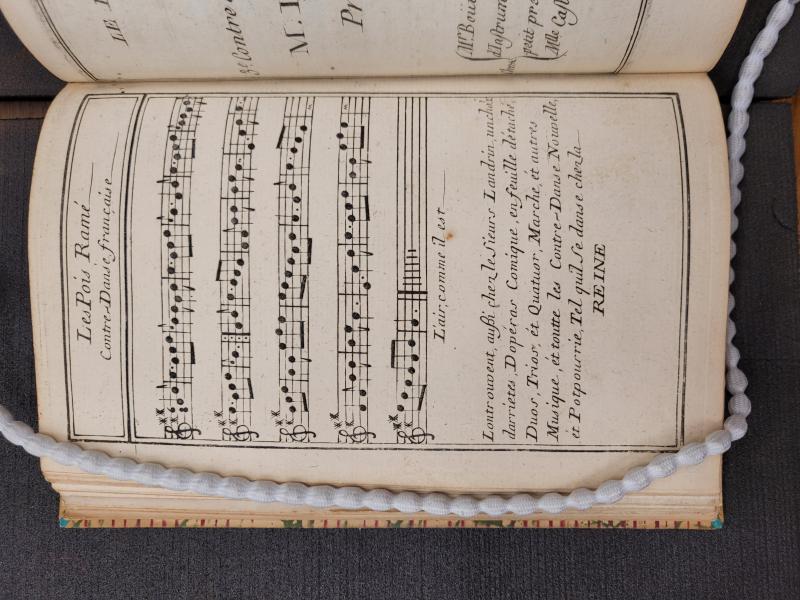 LE
3e Contre
M.
Pr
Mr. Bouïn
d'Instrum
petit pro
Mlle Cast
Les Pois Ramé
Contre-Danse française
L'air, comme il est
Lontrouvent, außi chez le Sieurs Landrin, un choix
darrietes D'opéras Comique, en feuille détaché,
Duos, Trios, ét Quatuor, Marche, ét autres
Musique, ét toutte les Contre-Danse Nouvelle,
ét Potpourrie, Tel quil se danse chez la
REINE